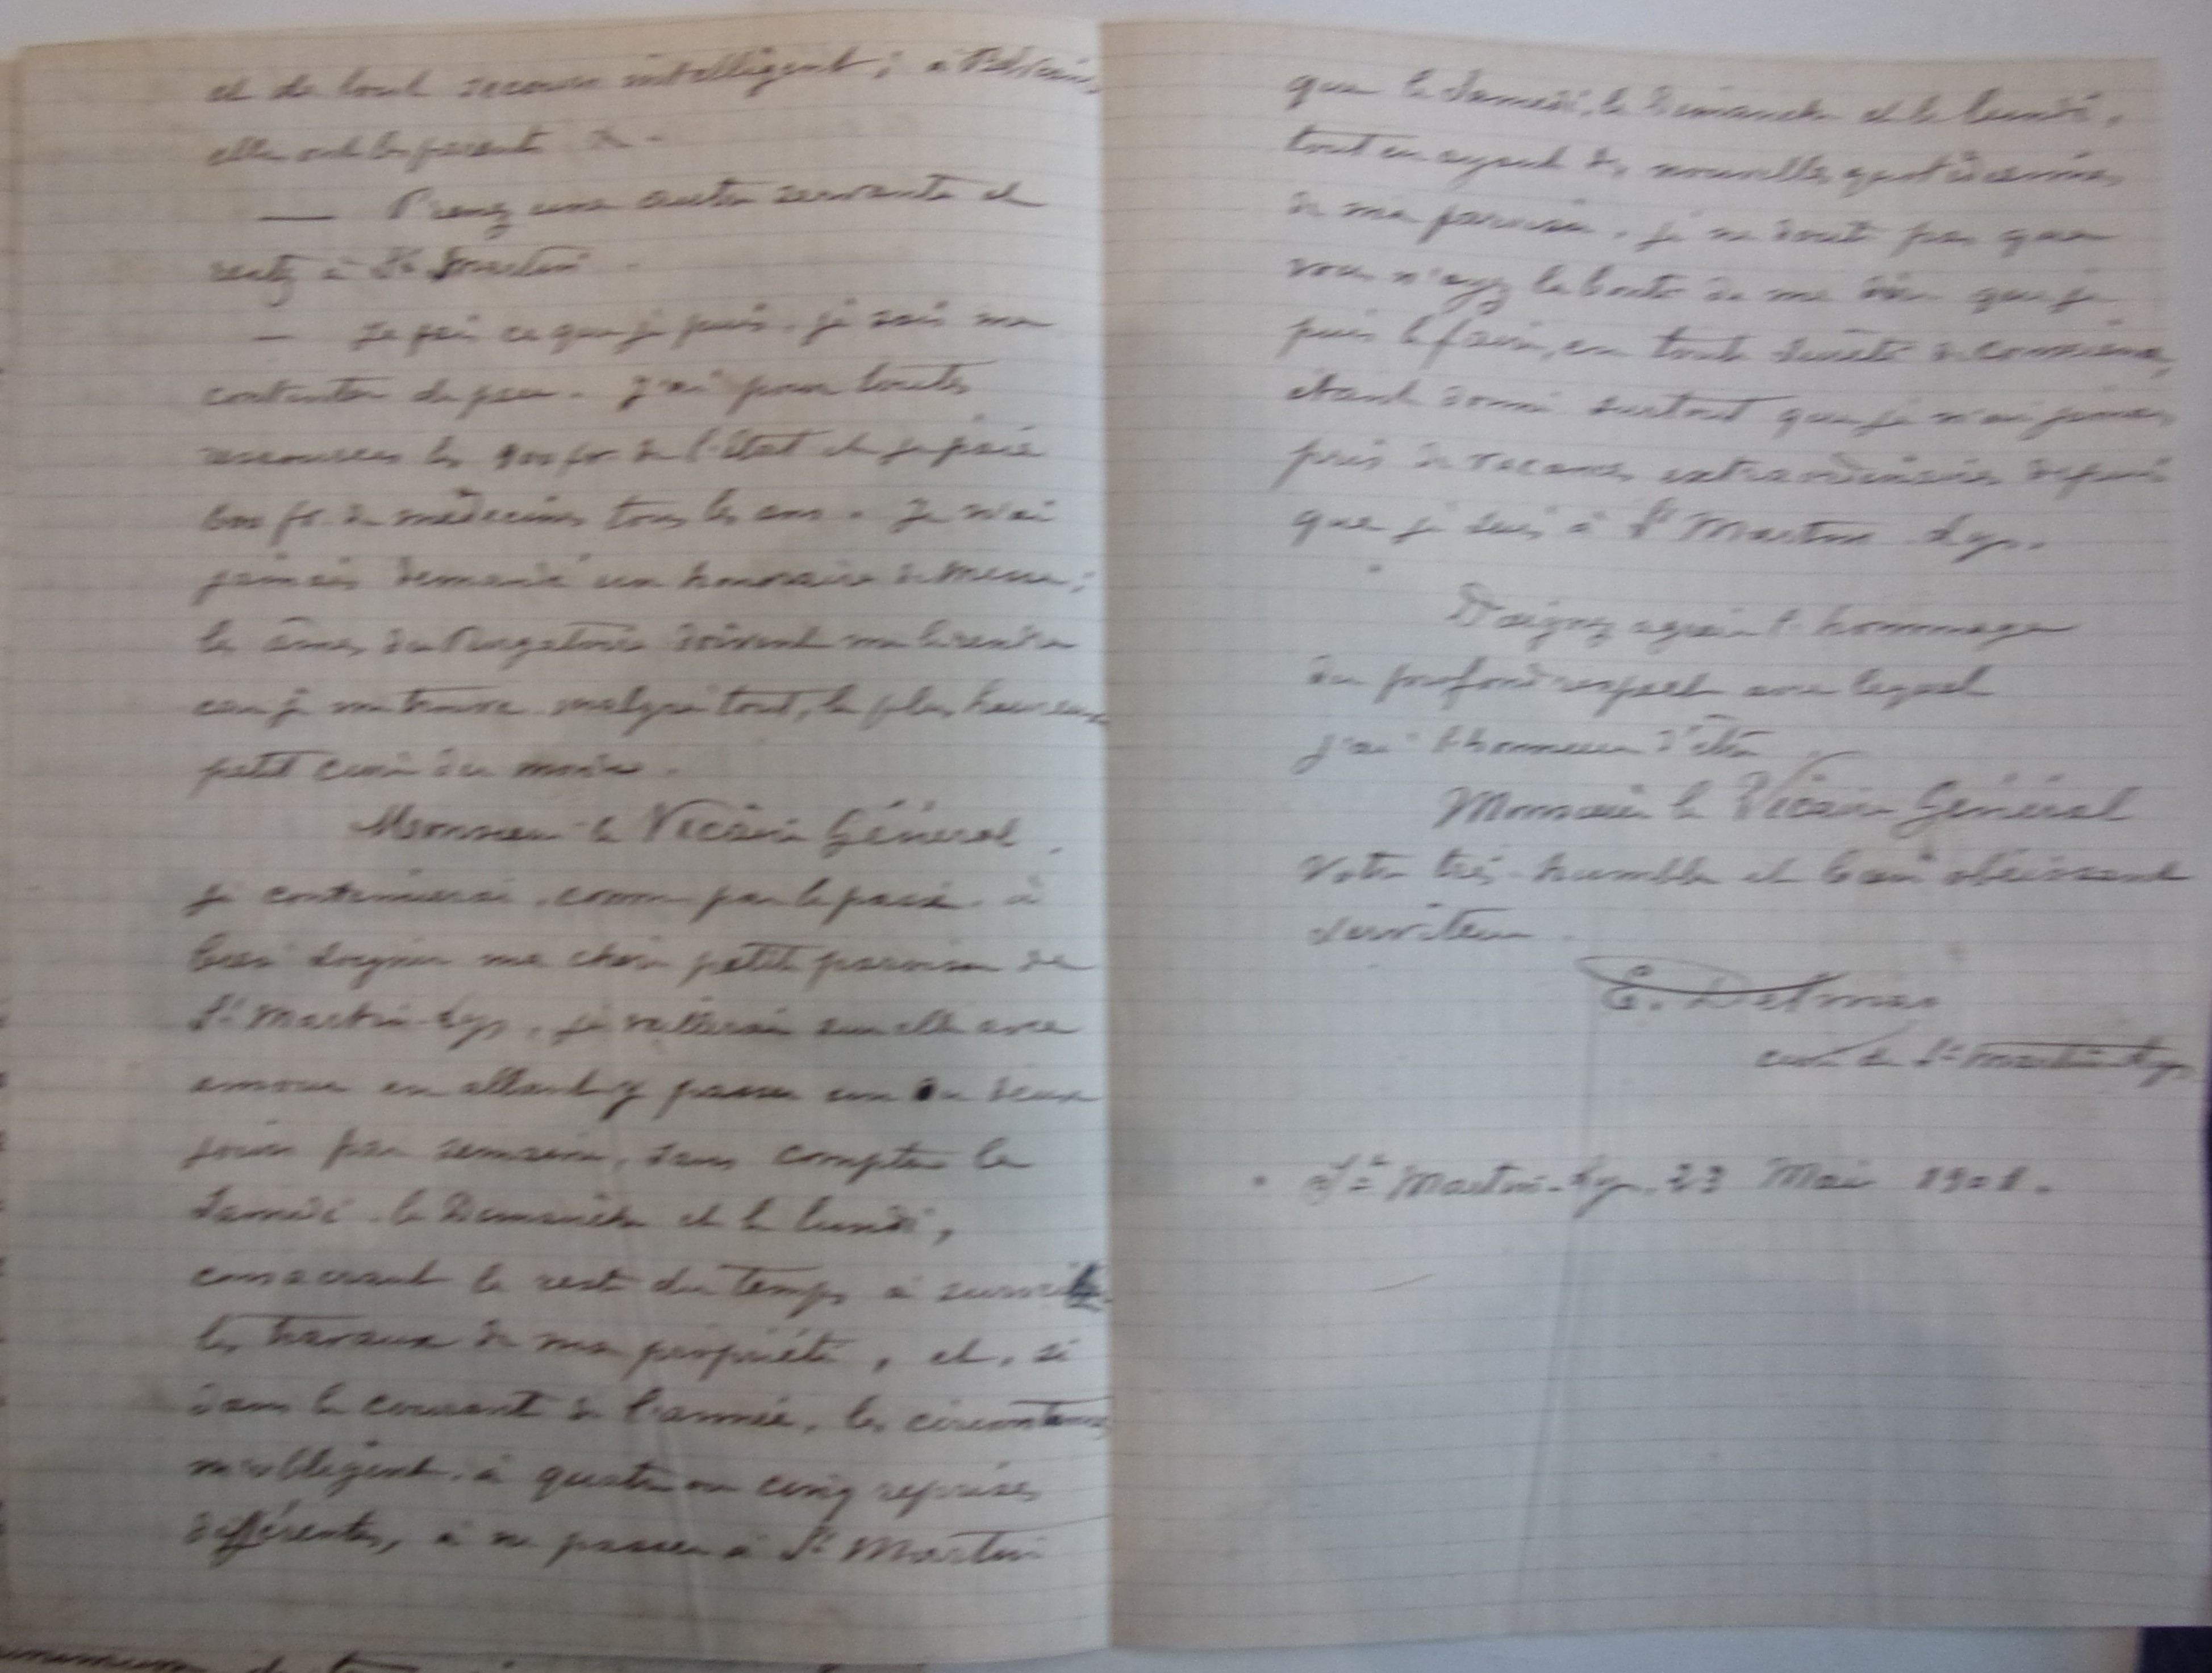 et de tout secours intelligent ; à
elle ont les parents &.
— Prenez une autre servante et
restez à St Martin.
— Je fais ce que je puis, je sais me
contenter de peu. J'ai pour toutes
ressources les 900 fr. de l'état et je paie
600 fr. de médecins tous les ans. Je n'ai
jamais demandé un honoraire de messe ;
les âmes du Purgatoire doivent me le rendre
car je me trouve malgré tout, le plus heureux
petit curé du monde.
Monsieur le Vicaire Général
je continuerai, comme par le passé, à
bien soigner ma chère petite paroisse de
St Martin-Lys, je veillerai sur elle avec
amour en allant y passer un ou deux
jours par semaine, sans compter le
Samedi, le Dimanche et le lundi,
consacrant le reste du temps à surveiller
les travaux de ma propriété, et, si
dans le courant de l'année, les circonstances
m'obligent, à quatre ou cinq reprises
différentes, à ne passer à St Martin
que le Samedi, le Dimanche et le lundi,
tout en ayant des nouvelles quotidiennes
de ma paroisse, je ne doute pas que
vous n'ayez la bonté de me dire que je
puis le faire, en toute sûreté de conscience,
étant donné surtout que je n'ai jamais
pris de vacances extraordinaires depuis
que je suis à St Martin-Lys.
Daignez agréer l'hommage
du profond respect avec lequel
j'ai l'honneur d'être
Monsieur le Vicaire Général
Votre très-humble et bien obéissant
serviteur.
E. Delmas
curé de St Martin-Lys
St Martin-Lys, 23 Mai 1901.